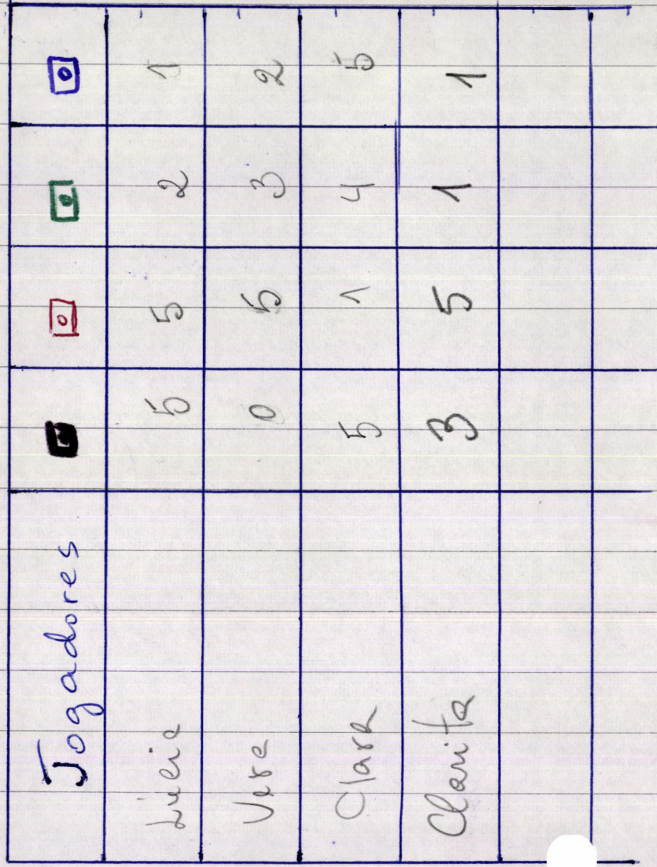 Jogadores
Lúcia 5 5 2 1
Vera 0 5 3 2
Clara 5 1 4 5
Clarita 3 5 1 1